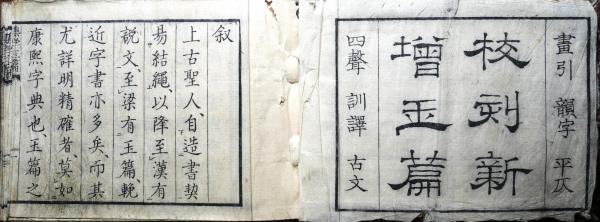 畫引 韻字 平仄
校刻新
增玉篇
四聲 訓譯 古文
叙
上古聖人、自造書契
易結繩、以降至漢有
說文至梁有玉篇輓
近字書亦多矣、而其
尤詳明精確者、莫如
康熙字典也、玉篇之